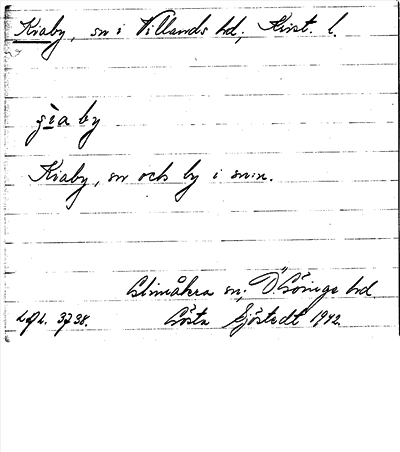 Kiaby, sn i Villands hd, Krist. l.
çìa by
Kiaby, sn och by i sn:n.
Glimåkra sn, Ö. Göinge hd.
LAL. 3738. Gösta Sjöstedt 1942.